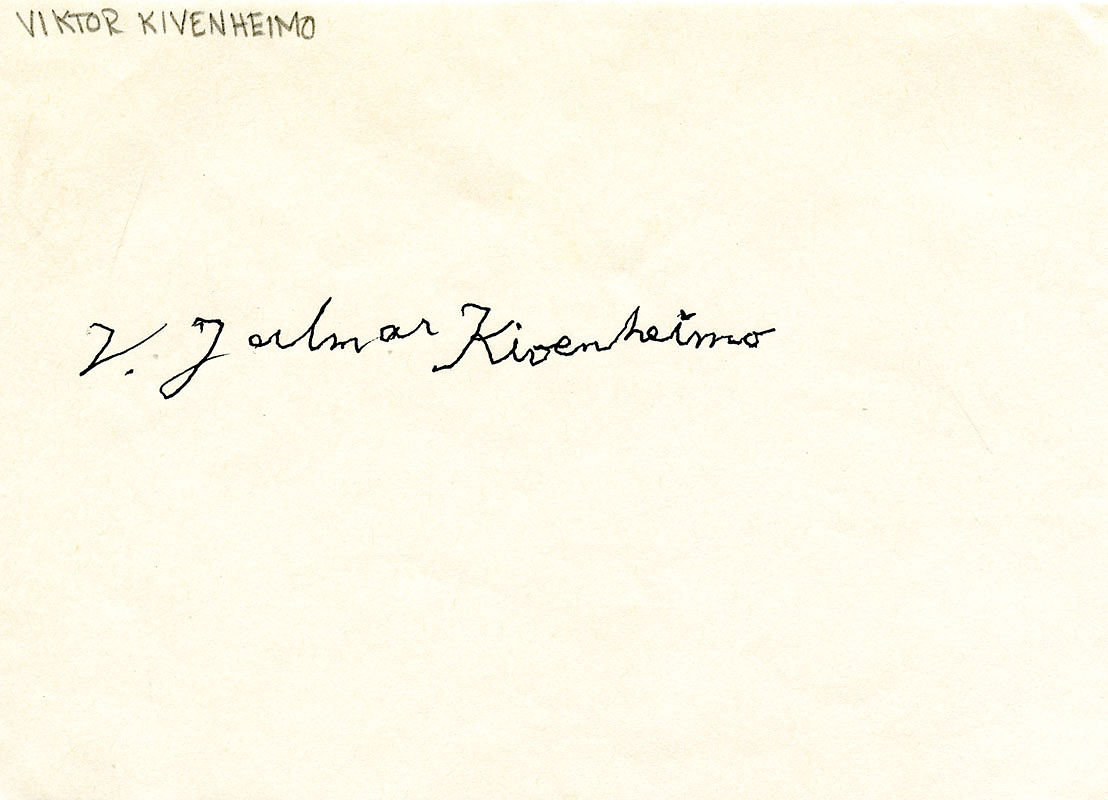 VIKTOR KIVENHEIMO
V. Jalmar Kivenheimo